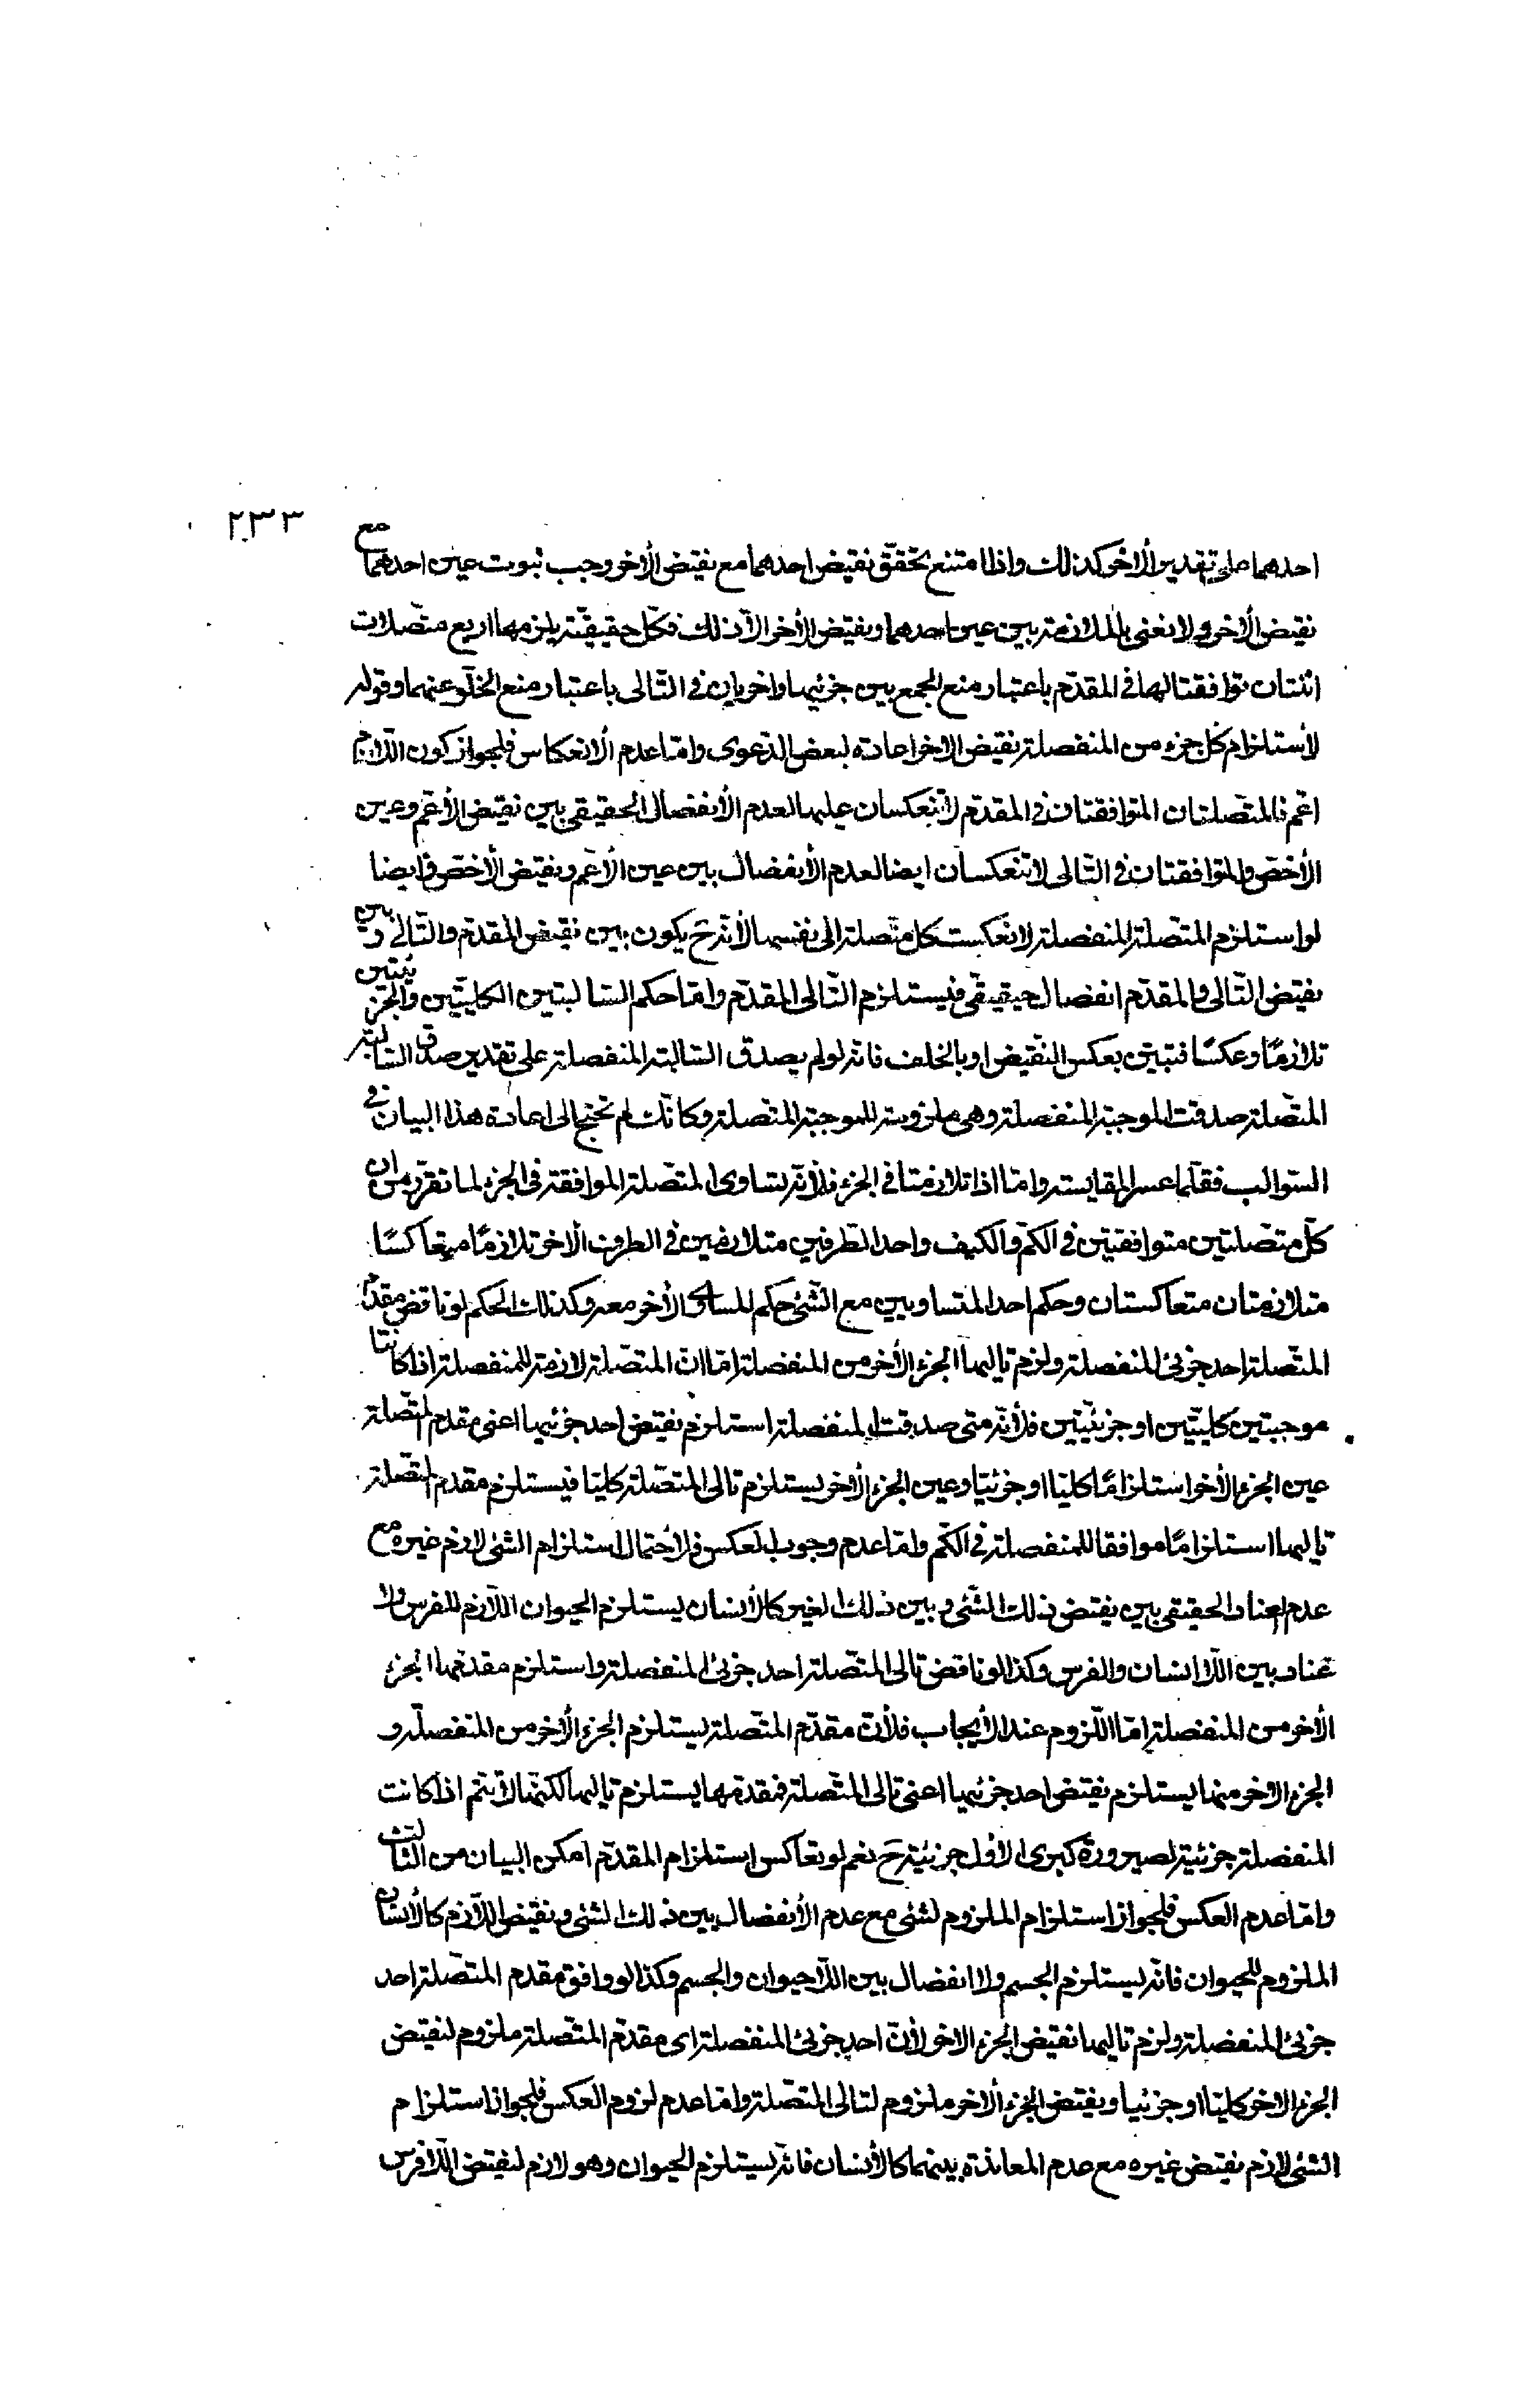 ٢٣٣
احدهما على تقدير الأخر كذلك واذا امتنع تحقّق نقيض احدهما مع نقيض الأخر وجب ثبوت عين احدهما مع
نقيض الأخر ولا نعنى بالملازمة بين عين احدهما ونقيض الأخر الّا ذلك فكلّ حقيقيّة يلزمها اربع متّصلات
اثنتان توافقتا لها فى المقدّم باعتبار منع الجمع بين جزئيها واخريان فى التّالى باعتبار منع الخلّو عنهما وقوله
لأستلزام كل جزء من المنفصلة نقيض الاخر اعادة لبعض الدّعوى وامّا عدم الأنعكاس فلجواز كون اللّازم
اعّم فالمتّصلتان المتوافقتان فى المقدّم لا تنعكسان عليها لعدم الأنفصال الحقيقى بين نقيض الأعّم وعين
الأخصّ والمتوافقتان فى التّالى لا تنعكسان ايضا لعدم الأنفصال بين عين الأعّم ونقيض الأخصّ وايضا
لو استلزم المتّصلة المنفصلة لانعكست كل متّصلة الى نفسها لأنّه ح يكون بين نقيض المقدّم والتّالى وبين
نقيض التّالى والمقدّم انفصال حقيقىّ فيستلزم التّالى المقدّم وامّا حكم السّالبتين الكليّتين والجزئيّتين
تلازمًا وعكسًا فتبيّن بعكس النّقيض او بالخلف فانّه لو لم يصدق السّالبة المنفصلة على تقدير صدق السّالبة
المتّصلة صدقت الموجبة المنفصلة وهى ملزومة للموجبة المتّصلة وكانّك لم تحتج الى اعادة هذا البيان فى
السّوالب فقلّما عسر المقايسة وامّا اذا تلازمتا فى الجزء فلأنّه تساوى المتّصلة الموافقة فى الجزء لما تقرّر من ان
كلّ متّصلتين متوافقتين فى الكمّ والكيف واحد الطّرفين متلازمين فى الطرف الأخر تلازمًا متعاكسًا
متلازمتان متعاكستان وحكم احد المتساويين مع الشّئ حكم المساوى الأخر معه وكذلك الحكم لو ناقض مقدّم
المتّصلة احد جزئى المنفصلة ولزم تاليها الجزء الأخر من المنفصلة امّا انّ المتّصلة لازمة للمنفصلة اذا كانتا
موجبتين كليّتين او جزئيّتين فلأنّه متى صدقت المنفصلة استلزم نقيض احد جزئيها اعنى مقدم المتّصلة
عين الجزء الأخر استلزامًا كليّا او جزئيّا وعين الجزء الأخر يستلزم تالى المتّصلة كليّا فيستلزم مقدم المتّصلة
تاليها استلزامًا موافقا للمنفصلة فى الكمّ وامّا عدم وجوب العكس فلأحتمال استلزام الشئ لازم غيره مع
عدم العناد الحقيقى بين نقيض ذلك الشّئ وبين ذلك الغير كالأنسان يستلزم الحيوان اللّازم للفرس ولا
عناد بين اللّا انسان والفرس وكذا لو ناقض تالى المتّصلة احد جزئى المنفصلة واستلزم مقدّمها الجزء
الأخر من المنفصلة امّا اللّزوم عند الأيجاب فلأنّ مقدّم المتّصلة يستلزم الجزء الأخر من المنفصلة و
الجزء الأخر منها يستلزم نقيض احد جزئيها اعنى تالى المتّصلة فمقدمها يستلزم تاليها لكنّها لا يتّم اذا كانت
المنفصلة جزئيّة لصيرورة كبرى الأول جزئيّة ح نعم لو تعاكس استلزام المقدّم امكن البيان من الثّالث
وامّا عدم العكس فلجواز استلزام الملزوم لشئ مع عدم الأنفصال بين ذلك الشئ ونقيض اللّازم كالأنسان
الملزوم للحيوان فانّه يستلزم الجسم ولا انفصال بين اللّا حيوان والجسم وكذا لو وافق مقدم المتّصلة احد
جزئى المنفصلة ولزم تاليها نقيض الجزء الاخر لأنّ احد جزئى المنفصلة اى مقدّم المتّصلة ملزوم لنقيض
الجزء الاخر كليّا او جزئيا ونقيض الجزء الأخر ملزوم لتالى المتّصلة وامّا عدم لزوم العكس فلجواز استلزام
الشئ لازم نقيض غيره مع عدم المعاندة بينهما كالأنسان فانّه يستلزم الحيوان وهو لازم لنقيض اللّا فرس